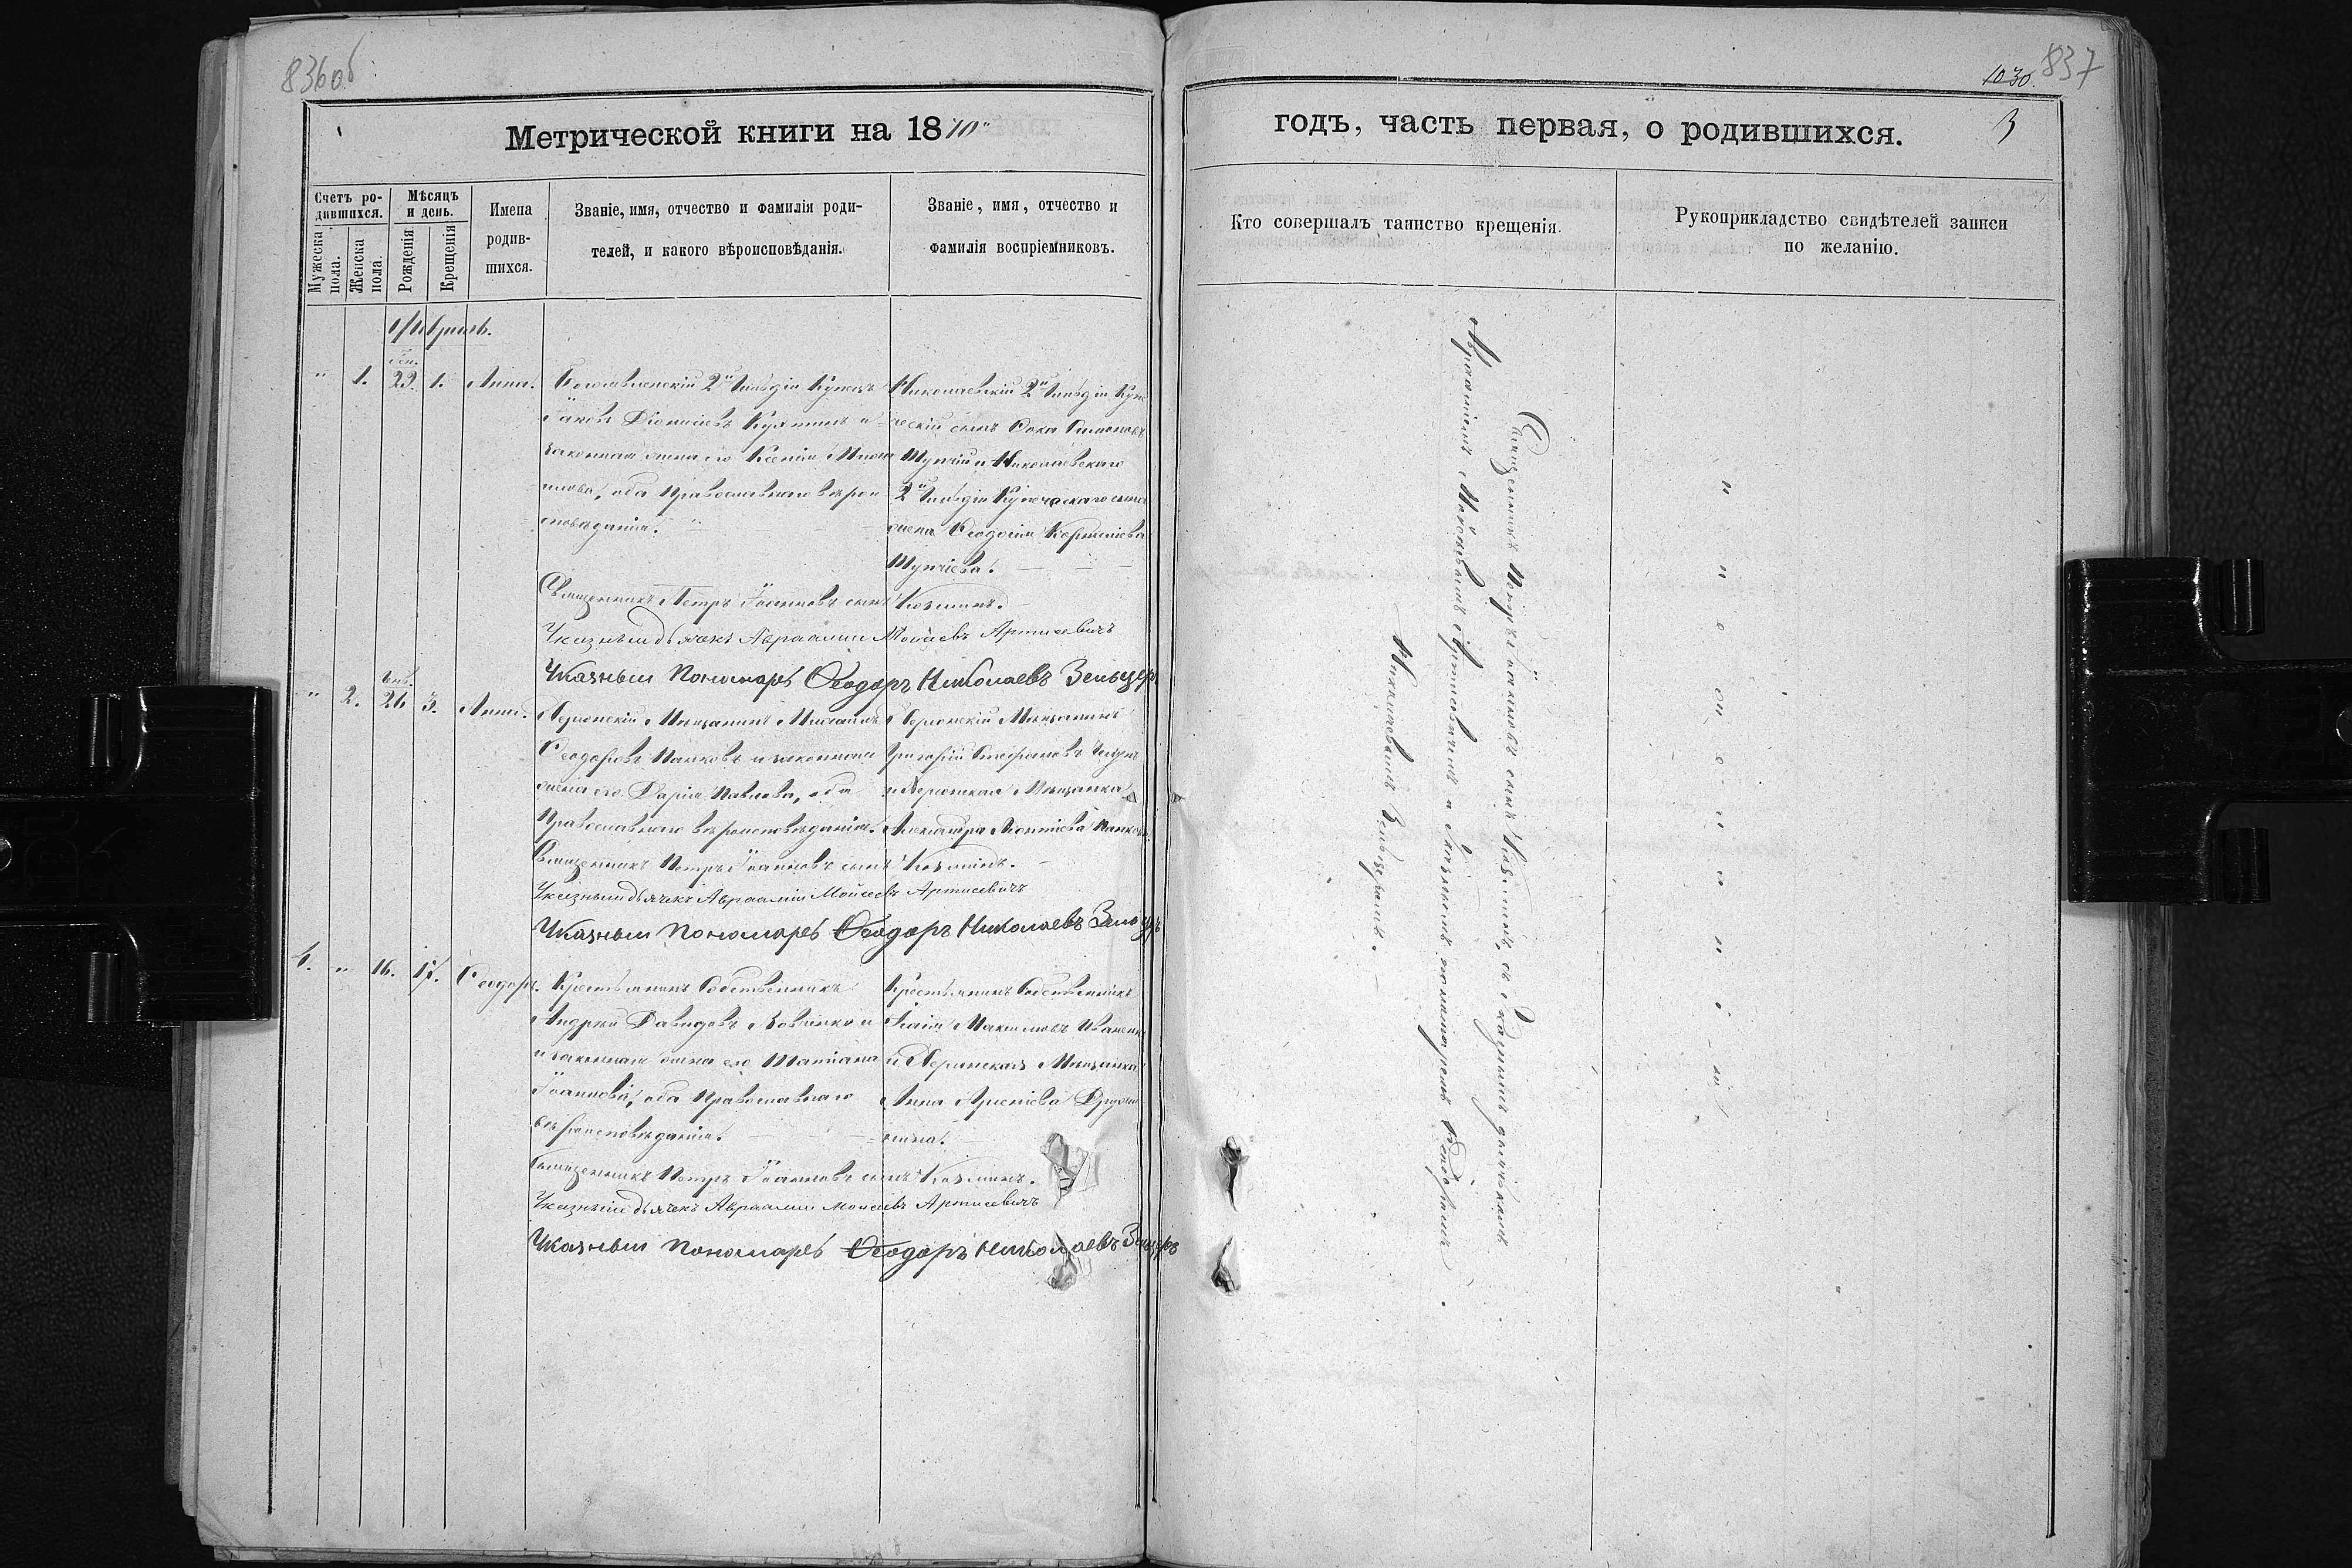 836об
Метрической книги на 1870
Счетъ родившихся.
Мужеска пола.
Женска пола.
Мѣсяцъ и день.
Рожденія
Крещенія
Имена родившихся.
Званіе, имя, отчество и фамилія родителей, и какого вѣроисповѣданія.
Званіе, имя, отчество и фамилія воспріемниковъ.
Февраль.
" 1. Ген. 29. 1. Анна.
2й Гильдіи Купецъ
Іаковъ Діонисіевъ и
законная жена его Ксенія
оба Православнаго вѣрои-
сповѣданія.
Николаевскій 2й Гильдіи Купе-
ческій сынъ Фока Симоновъ
и Николаевскаго
2й Гильдіи Купеческаго сына
жена Феодосія
Священникъ Петръ Іоанновъ сынъ Козминъ.
Указный дьячекъ Авраамій Моисеевъ Артисевичъ
Указный Пономарь Ѳеодоръ Николаевъ Зельцеръ
" 2. Янв. 26 3. Анна.
Херсонскій Мѣщанинъ Михаилъ
Феодоровъ Панковъ и законная
жена его Дарія Павлова, оба
Православнаго вѣроисповѣданія.
Херсонскій Мѣщанинъ
Григорій Стефановъ
и Херсонская Мѣщанка
Александра Леонтіева Панкова.
Священникъ Петръ Іоанновъ сынъ Козминъ.
Указный дьячекъ Авраамій Моисеевъ Артисевичъ
Указный Пономарь Ѳеодоръ Николаевъ Зельцеръ
1. " 16. 17. Феодоръ.
Крестьянинъ Собственникъ
Андрей Давидовъ и
законная жена его Татіана
Іоаннова, оба Православнаго
вѣроисповѣданія.
Крестьянинъ Собственникъ
Максимовъ
и Херсонская Мѣщанка
Анна Арсеніева
Священникъ Петръ Іоанновъ сынъ Козминъ.
Указный дьячекъ Авраамій Моисеевъ Артисевичъ
Указный Пономарь Ѳеодоръ Николаевъ Зельцеръ
1030.
837
годъ, часть первая, о родившихся.
3
Кто совершалъ таинство крещенія.
Рукоприкладство свидѣтелей записи
по желанію.
Священникъ Петръ Іоанновъ сынъ Козминъ, съ Указнымъ дьячкомъ
Аврааміемъ Моисеевымъ Артисевичемъ и Указнымъ пономаремъ Феодоромъ
Николаевымъ Зельцеромъ.